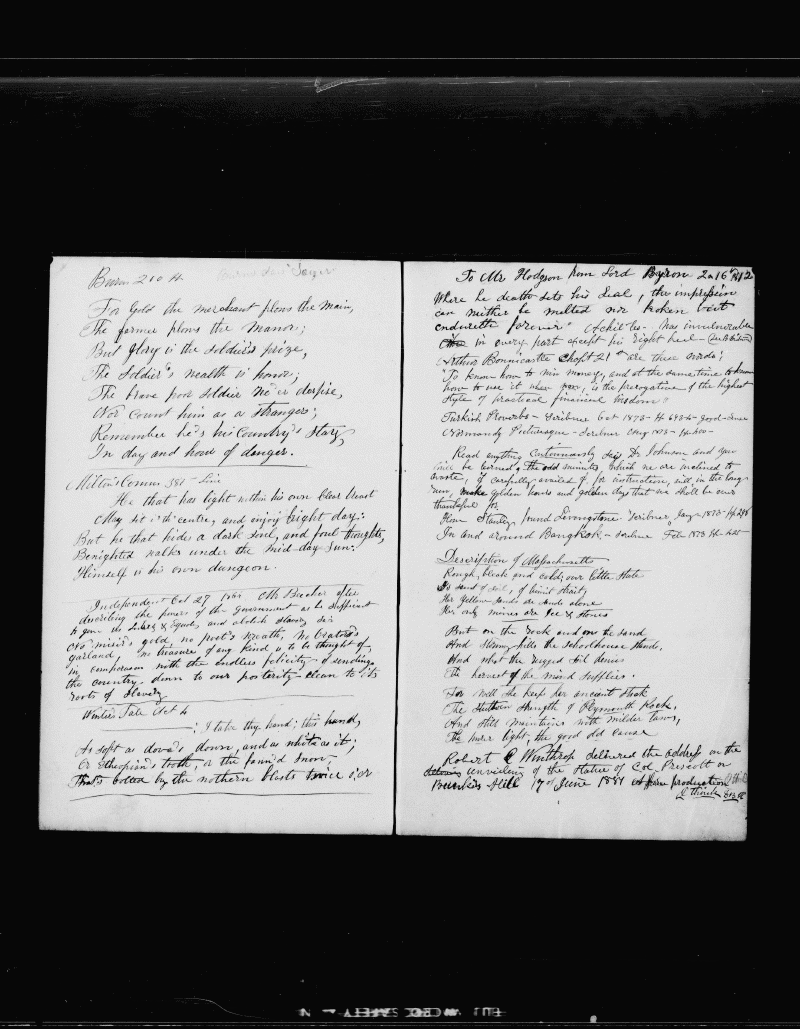 Burns 210 H
For Gold the merchant plows the Main,
The farmer plows the Manor;
But Glory is the Soldier's prize,
The Soldier's wealth is honor;
The brave poor Soldier Ne'er despise,
Nor Count him as a Stranger;
Remember he's his Country's Stay,
In day and hour of danger.
Milton's Comus 381 - Line
He that has light within his own Clear breast
May sit i' the centre, and enjoy bright day:
But he that hides a dark Soul, and foul thoughts,
Benighted walks under the mid-day Sun:
Himself is his own dungeon.
Independent Oct 27 Mr Beecher after
describing the powers of the Government as be Sufficient
to and abolish slavery, Sir
No miser's gold, no poet's wreath, no orator's
garland, no treasure of any kind is to be thought of
in comparison with the endless felicity of sending
the country down to our posterity clean to its
roots of Slavery
Winter's Tale Act 4
: I take thy hand; this hand,
As soft as dove's down, and as white as it;
Or Ethiopian's tooth, or the fann'd snow,
That's bolted by the northern blasts twice o'er
To Mr Hodgson from Lord Byron 16
Where he death sets his Seal, the impression
can neither be melted nor broken but
endureth forever" Achilles - was invulnerable
in every part except his right heel -
Arthur Bonnicastle Chapt 21st are these words;
"To know how to win money, and at the same time to know
how to use it when won, is the prerogative of the highest
style of practical financial wisdom"
Turkish Proverbs - Scribner Oct 1873 - good - Sense
Normandy Picturesque - Scribner Aug 1873 -
Read anything Continuously says Dr Johnson and you
will be learned, the odd minutes, which we are inclined to
waste, if carefully availed of for instruction, will in the long
run, make golden hours and golden days that we shall be ever
thankful for.
How Stanley found Livingstone "Scribner" Jany - 1873 - H 298
In and around Bangkok - Scribner Feb 1873
Description of Massachusetts
Rough, bleak and cold, our little State
Is hard of soil, of limit strait;
Her Yellow sands are sands alone
Her only mines are Ice & Stones
But on the Rock and on the sand
And Stony hills the schoolhouse Stands,
And what the rugged Soil denies
The harvest of the mind supplies.
For well she keeps her ancient Stock
The Stubborn Strength of Plymouth Rock,
And still maintains with milder laws,
The clearer light, the good old Cause
Robert C Winthrop delivered the address on the
unveiling of the Statue of Col Prescott on
Bunkers Hill 17 of June 1881 A fine production
I think